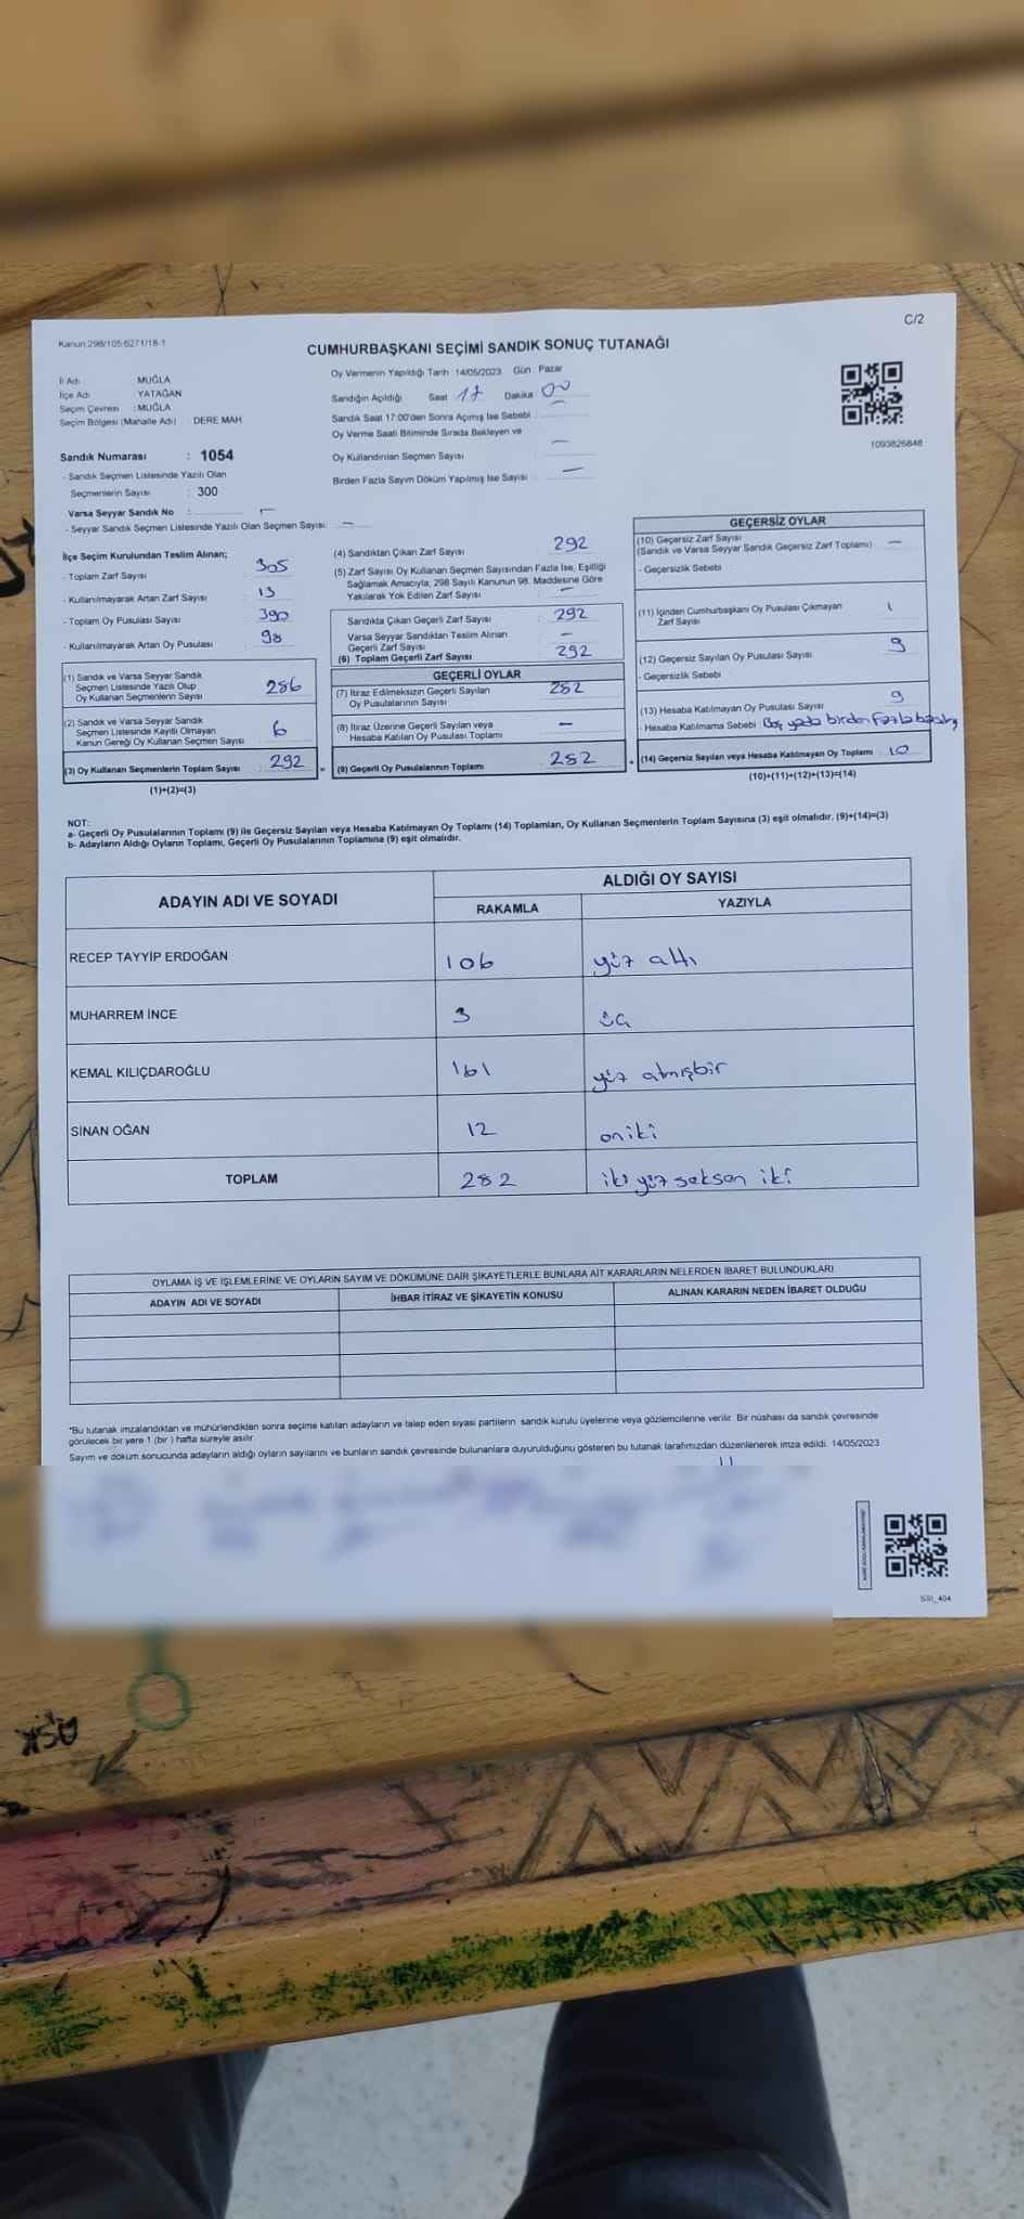 C/2
Kanun:298/105 6271/18-1
CUMHURBAŞKANI SEÇİMİ SANDIK SONUÇ TUTANAĞI
İl Adı : MUĞLA
İlçe Adı : YATAĞAN
Seçim Çevresi : MUĞLA
Seçim Bölgesi (Mahalle Adı) DERE MAH
Sandık Numarası : 1054
- Sandık Seçmen Listesinde Yazılı Olan
Seçmenlerin Sayısı : 300
Varsa Seyyar Sandık No : —
- Seyyar Sandık Seçmen Listesinde Yazılı Olan Seçmen Sayısı : —
Oy Vermenin Yapıldığı Tarih 14/05/2023 Gün : Pazar
Sandığın Açıldığı Saat 17 Dakika 00
Sandık Saat 17:00'den Sonra Açımış İse Sebebi : —
Oy Verme Saati Bitiminde Sırada Bekleyen ve
Oy Kullandırılan Seçmen Sayısı : —
Birden Fazla Sayım Döküm Yapılmış İse Sayısı : —
1093826848
İlçe Seçim Kurulundan Teslim Alınan;
- Toplam Zarf Sayısı : 305
- Kullanılmayarak Artan Zarf Sayısı : 13
- Toplam Oy Pusulası Sayısı : 390
- Kullanılmayarak Artan Oy Pusulası : 98
(1) Sandık ve Varsa Seyyar Sandık
Seçmen Listesinde Yazılı Olup
Oy Kullanan Seçmenlerin Sayısı : 286
(2) Sandık ve Varsa Seyyar Sandık
Seçmen Listesinde Kayıtlı Olmayan
Kanun Gereği Oy Kullanan Seçmen Sayısı : 6
(3) Oy Kullanan Seçmenlerin Toplam Sayısı : 292
(1)+(2)=(3)
(4) Sandıktan Çıkan Zarf Sayısı : 292
(5) Zarf Sayısı Oy Kullanan Seçmen Sayısından Fazla İse, Eşitliği
Sağlamak Amacıyla, 298 Sayılı Kanunun 98. Maddesine Göre
Yakılarak Yok Edilen Zarf Sayısı : —
Sandıkta Çıkan Geçerli Zarf Sayısı : 292
Varsa Seyyar Sandıktan Teslim Alınan
Geçerli Zarf Sayısı : —
(6) Toplam Geçerli Zarf Sayısı : 292
GEÇERLİ OYLAR
(7) İtiraz Edilmeksizin Geçerli Sayılan
Oy Pusulalarının Sayısı : 282
(8) İtiraz Üzerine Geçerli Sayılan veya
Hesaba Katılan Oy Pusulası Toplamı : —
= (9) Geçerli Oy Pusulalarının Toplamı : 282
GEÇERSİZ OYLAR
(10) Geçersiz Zarf Sayısı
(Sandık ve Varsa Seyyar Sandık Geçersiz Zarf Toplamı) : —
- Geçersizlik Sebebi
(11) İçinden Cumhurbaşkanı Oy Pusulası Çıkmayan
Zarf Sayısı : 1
(12) Geçersiz Sayılan Oy Pusulası Sayısı : 9
- Geçersizlik Sebebi
(13) Hesaba Katılmayan Oy Pusulası Sayısı : 9
- Hesaba Katılmama Sebebi : Boş yada birden fazla
+ (14) Geçersiz Sayılan veya Hesaba Katılmayan Oy Toplamı : 10
(10)+(11)+(12)+(13)=(14)
NOT:
a- Geçerli Oy Pusulalarının Toplamı (9) ile Geçersiz Sayılan veya Hesaba Katılmayan Oy Toplamı (14) Toplamları, Oy Kullanan Seçmenlerin Toplam Sayısına (3) eşit olmalıdır. (9)+(14)=(3)
b- Adayların Aldığı Oyların Toplamı, Geçerli Oy Pusulalarının Toplamına (9) eşit olmalıdır.
ADAYIN ADI VE SOYADI
ALDIĞI OY SAYISI
RAKAMLA YAZIYLA
RECEP TAYYİP ERDOĞAN 106 yüz altı
MUHARREM İNCE 3 üç
KEMAL KILIÇDAROĞLU 161 yüz atmışbir
SİNAN OĞAN 12 oniki
TOPLAM 282 iki yüz seksen iki
OYLAMA İŞ VE İŞLEMLERİNE VE OYLARIN SAYIM VE DÖKÜMÜNE DAİR ŞİKAYETLERLE BUNLARA AİT KARARLARIN NELERDEN İBARET BULUNDUKLARI
ADAYIN ADI VE SOYADI İHBAR İTİRAZ VE ŞİKAYETİN KONUSU ALINAN KARARIN NEDEN İBARET OLDUĞU
*Bu tutanak imzalandıktan ve mühürlendikten sonra seçime katılan adayların ve talep eden siyasi partilerin sandık kurulu üyelerine veya gözlemcilerine verilir. Bir nüshası da sandık çevresinde
görülecek bir yere 1 (bir ) hafta süreyle asılır.
Sayım ve döküm sonucunda adayların aldığı oyların sayılarını ve bunların sandık çevresinde bulunanlara duyurulduğunu gösteren bu tutanak tarafımızdan düzenlenerek imza edildi. 14/05/2023
AŞK